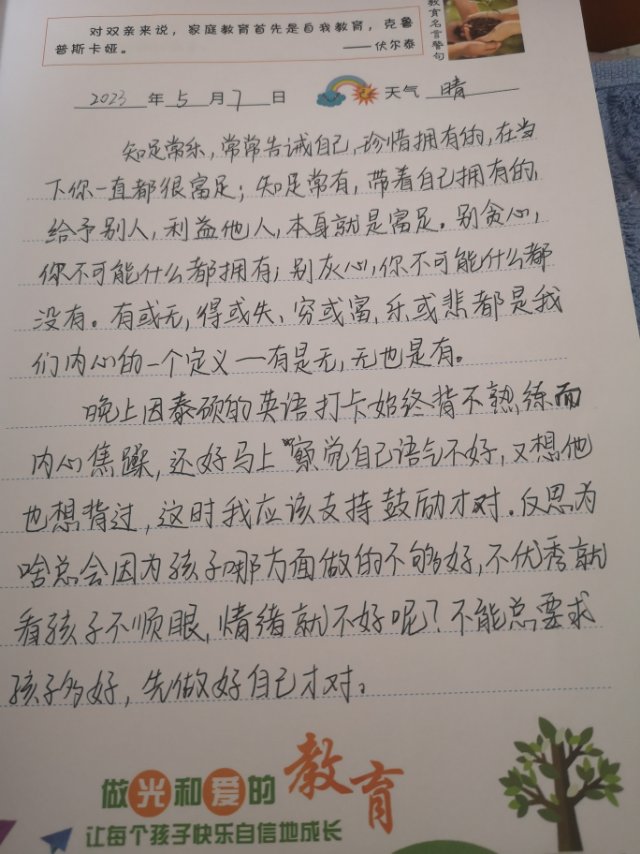 对双亲来说，家庭教育首先是自我教育，克鲁
普斯卡娅。 ——伏尔泰
教育名言警句
2023 年 5 月 7 日 天气 晴
知足常乐，常常告诫自己，珍惜拥有的，在当
下你一直都很富足；知足常有，带着自己拥有的，
给予别人，利益他人，本身就是富足。别贪心，
你不可能什么都拥有；别灰心，你不可能什么都
没有。有或无，得或失、穷或富，乐或悲都是我
们内心的一个定义一有是无，无也是有。
晚上因泰硕的英语打卡始终背不熟练而
内心焦躁，还好马上察觉自己语气不好，又想他
也想背过，这时我应该支持鼓励才对。反思为
啥总会因为孩子哪方面做的不够好，不优秀就
看孩子不顺眼，情绪就不好呢？不能总要求
孩子多好，先做好自己才对。
做光和爱的教育
让每个孩子快乐自信地成长